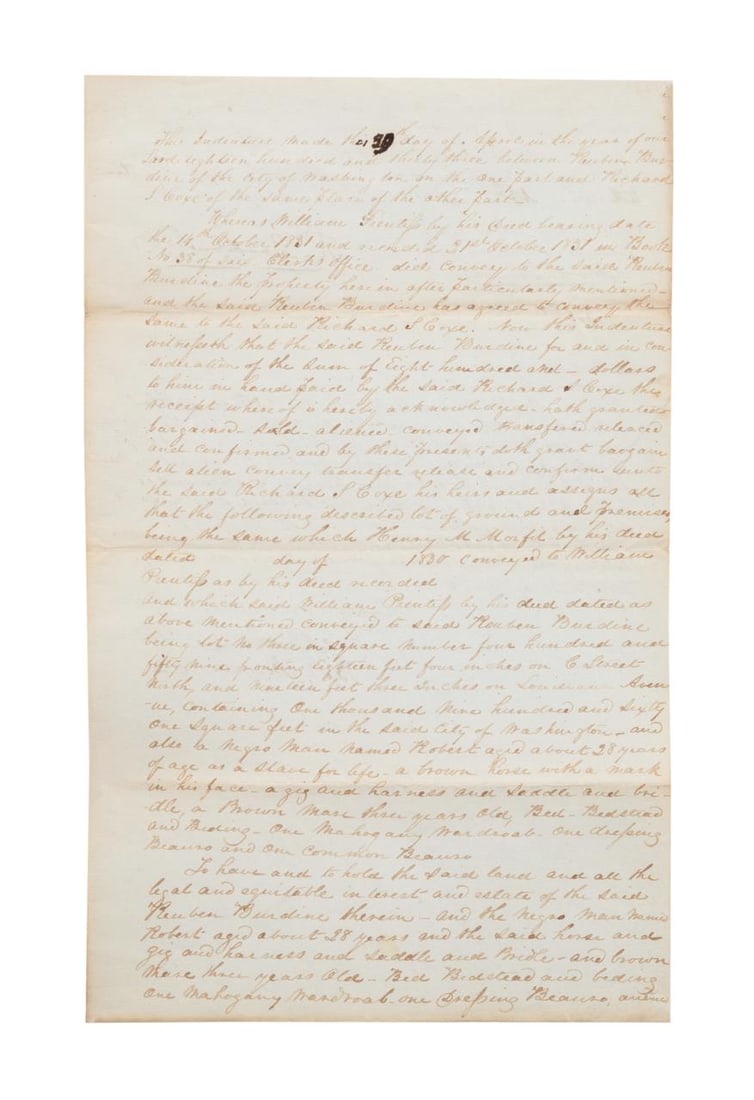 This Indenture made this 29 day of April in the year of our
Lord eighteen hundred and thirty three between Reuben Bur-
dine of the City of Washington on the one part and Richard
S Coxe of the same place of the other part
Whereas William Prentiss by his deed bearing date
the 14th October 1831 and recorded 31st October 1831 in Book
No 38 of said Clerks office did convey to the said Reuben
Burdine the property herein after particularly mentioned -
and the said Reuben Burdine has agreed to convey the
same to the said Richard S Coxe. Now this Indenture
witnesseth that the said Reuben Burdine for and in con-
sideration of the sum of Eight hundred and - dollars
to him in hand paid by the said Richard S Coxe the
receipt where of is hereby acknowledged - hath granted
bargained - sold - aliened conveyed transfered released
and confirmed and by these presents doth grant bargain
sell alien convey transfer release and confirm unto
the said Richard S Coxe his heirs and assigns all
that the following described lot of ground and Premises,
being the same which Henry M Morfit by his deed
dated day of 1830 conveyed to William
Prentiss as by his deed recorded
and which said William Prentiss by his deed dated as
above mentioned conveyed to said Reuben Burdine
being lot No three in square number four hundred and
fifty nine fronting eighteen feet four inches on C Street
North, and nineteen feet three Inches on Louisiana Aven-
ue, containing One thousand Nine hundred and Sixty
One Square feet in the said City of Washington - and
also a Negro Man named Robert aged about 28 years
of age as a slave for life - a brown horse with a mark
in his face - a gig and harness and Saddle and bri-
dle, a Brown Mare three years Old, Bed - Bedstead
and Beding - One Mahogany Wardroab - One dressing
Beauro and One Common Beauro
To have and to hold the said land and all the
legal and equitable interest and estate of the said
Reuben Burdine therein - and the Negro Man Name
Robert aged about 28 years and the said horse and
gig and harness and Saddle and Bridle - and brown
Mare three years Old - Bed Bedstead and beding
One Mahogany Wardroab - one Dressing Beauro, and one